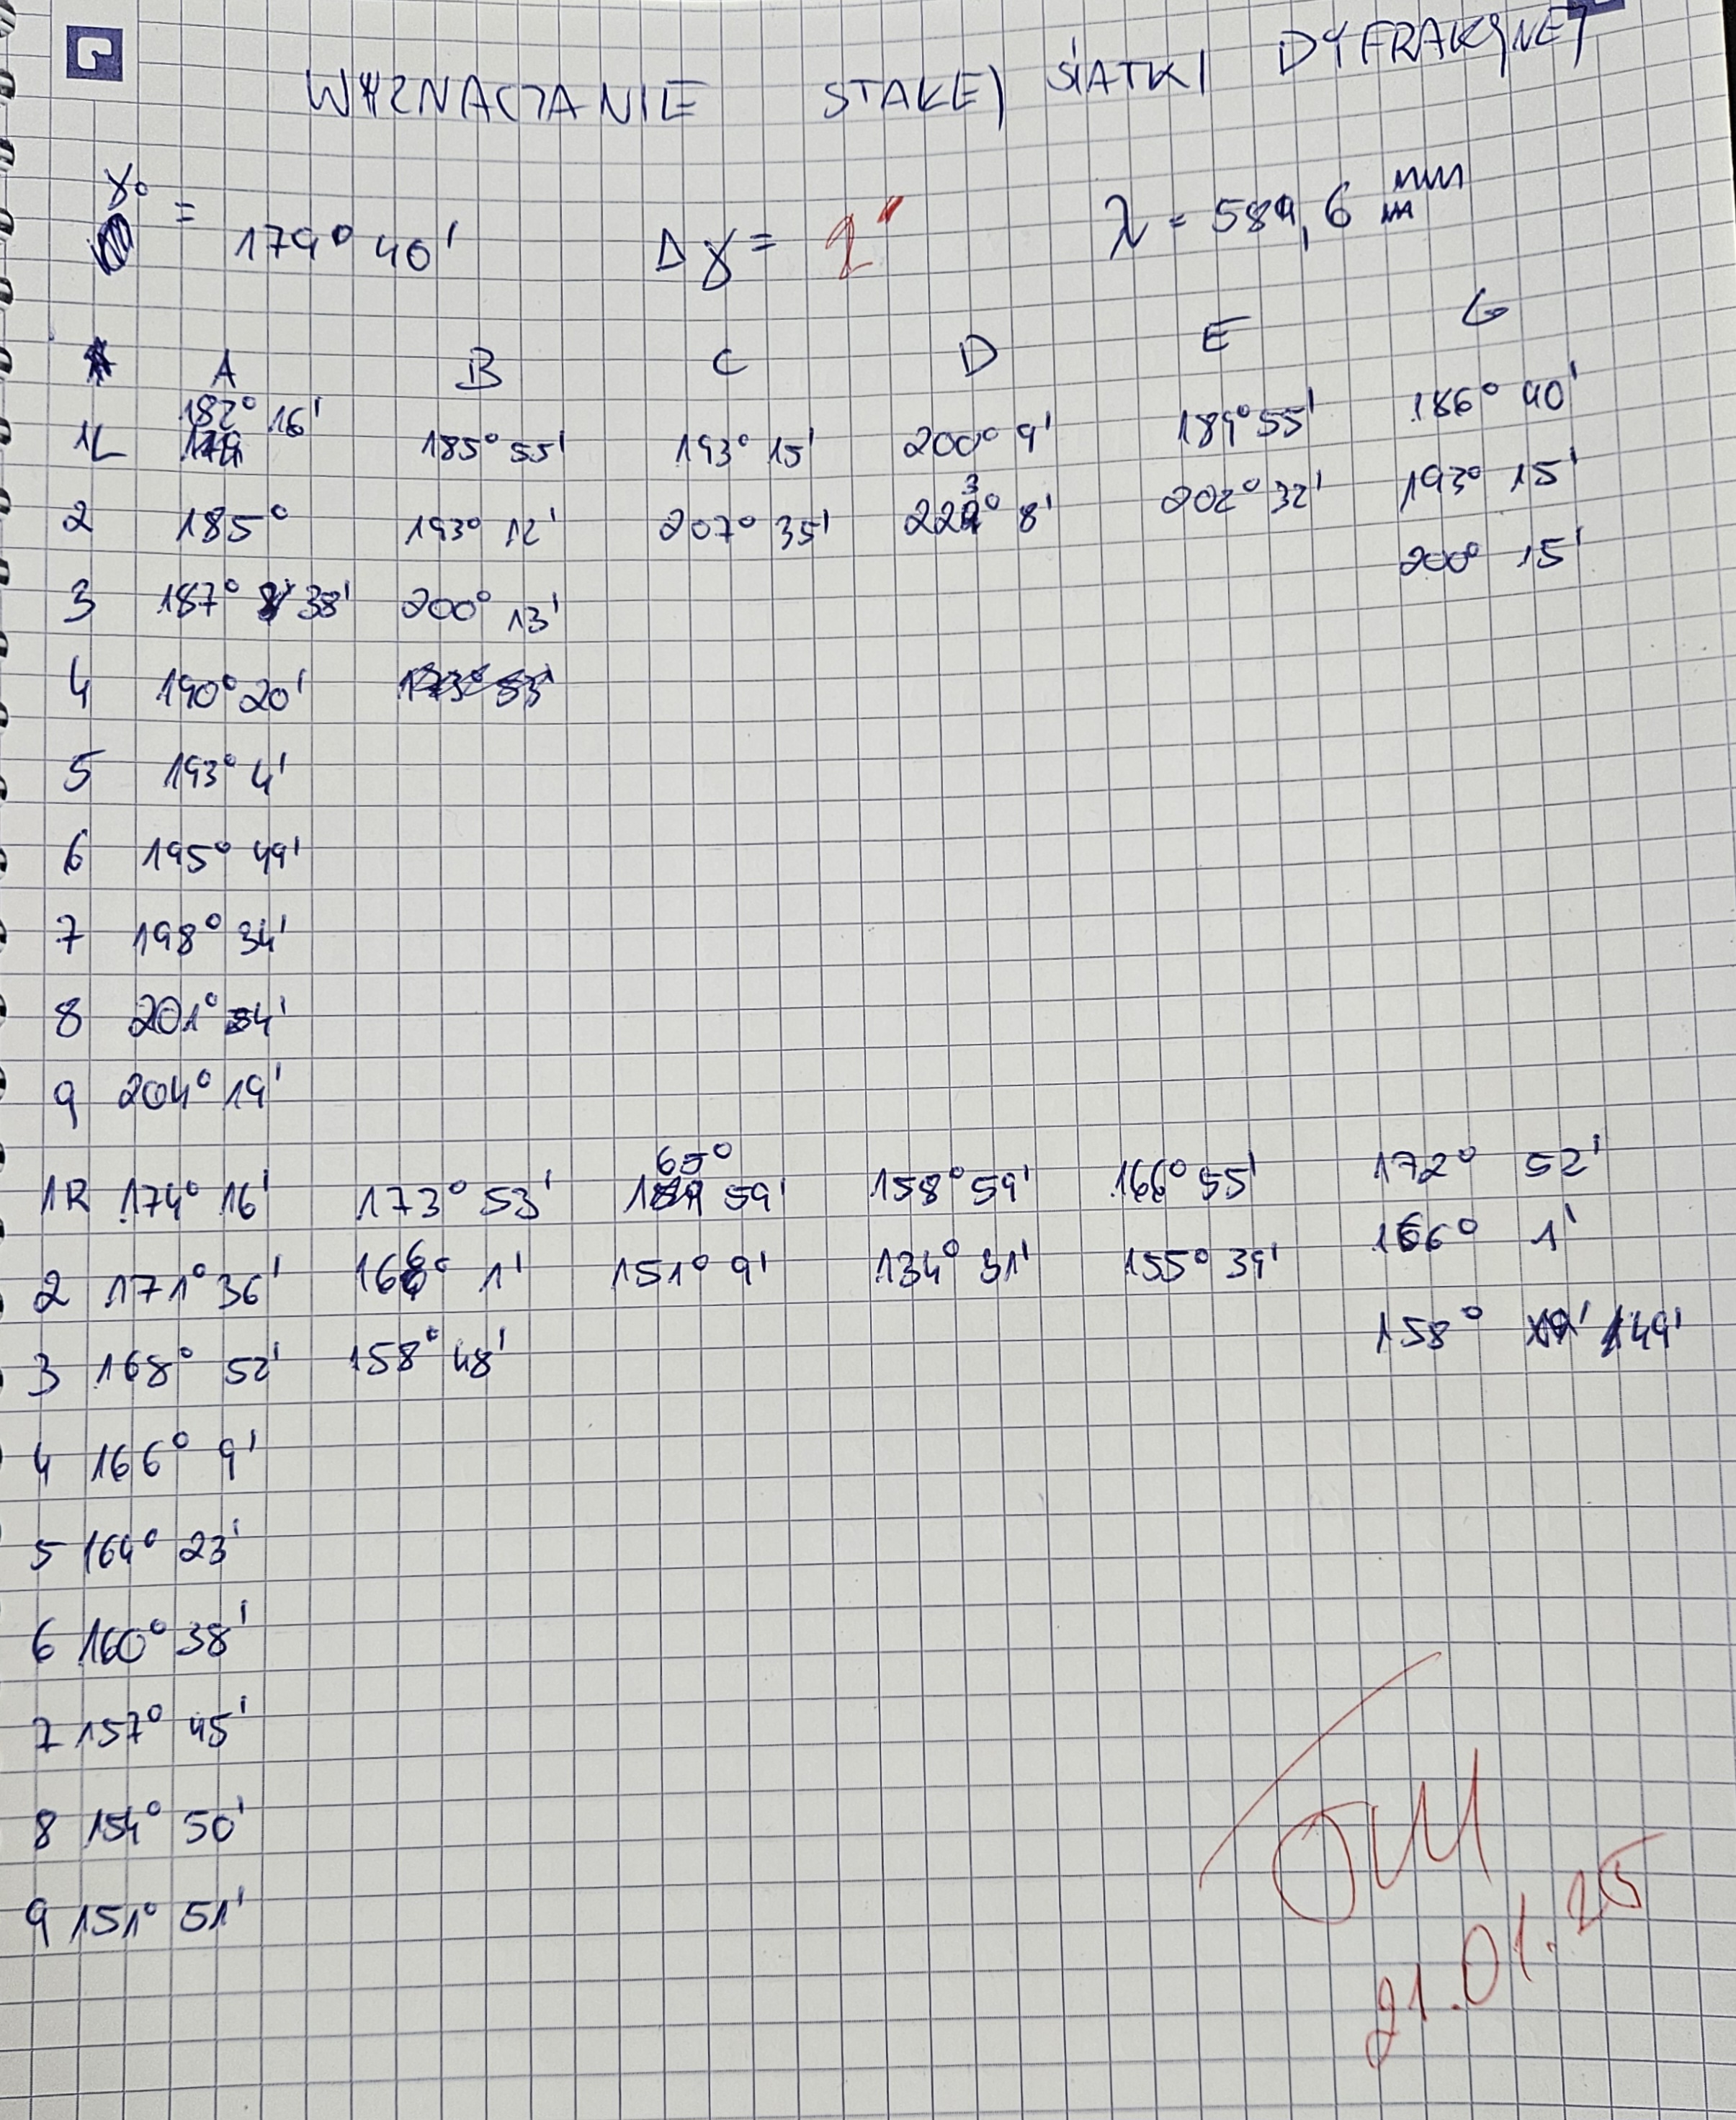 WYZNACZANIE STAŁEJ SIATKI DYFRAKCYJNEJ
γ₀ = 179° 40' Δγ = 1' λ = 589,6 nm
A B C D E G
1L 182° 16' 185° 55' 193° 15' 200° 9' 189° 55' 186° 40'
2 185° 193° 12' 207° 35' 223° 8' 202° 32' 193° 15'
3 187° 38' 200° 13' 200° 15'
4 190° 20'
5 193° 4'
6 195° 49'
7 198° 34'
8 201° 34'
9 204° 19'
1R 174° 16' 173° 53' 165° 59' 158° 59' 166° 55' 172° 52'
2 171° 36' 166° 1' 151° 9' 134° 31' 155° 39' 166° 1'
3 168° 52' 158° 48' 158° 49'
4 166° 9'
5 164° 23'
6 160° 38'
7 157° 45'
8 154° 50'
9 151° 51'
21.01.25